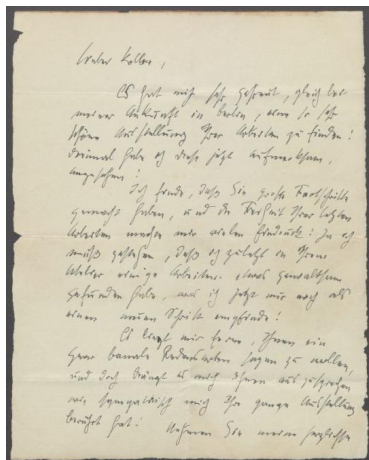 Lieber Kolbe,
Es hat mich sehr gefreut, gleich bei
meiner Ankunft in Berlin, eine so sehr
schöne Ausstellung Ihrer Arbeiten zu finden!
Dreimal habe ich diese jetzt aufmerksam,
angesehen!
Ich finde, daß Sie große Fortschritte
gemacht haben, und die Freiheit Ihrer letzten
Arbeiten machen mir vielen Eindruck! Ja ich
muß gestehen, daß ich zuletzt in Ihrem
Atelier einige Arbeiten etwas gewaltsam
gefunden habe, was ich jetzt nur noch als
einen neuen Schritt empfinde!
Es liegt mir ferne, Ihnen ein
paar banale Redensarten sagen zu wollen,
und doch drängt es mich Ihnen auszusprechen
wie sympathisch mich Ihre ganze Ausstellung
berührt hat! Nehmen Sie meine herzlichste